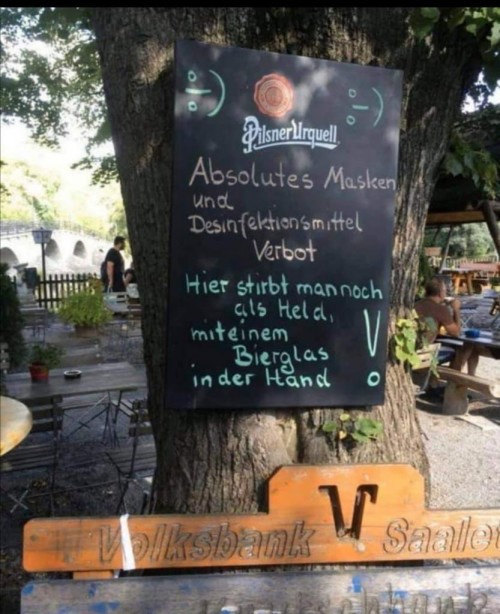 ÷) ÷)
Pilsner Urquell
Absolutes Masken
und
Desinfektionsmittel
Verbot
Hier stirbt man noch
als Held,
mit einem
Bierglas
in der Hand !
Volksbank Saalet